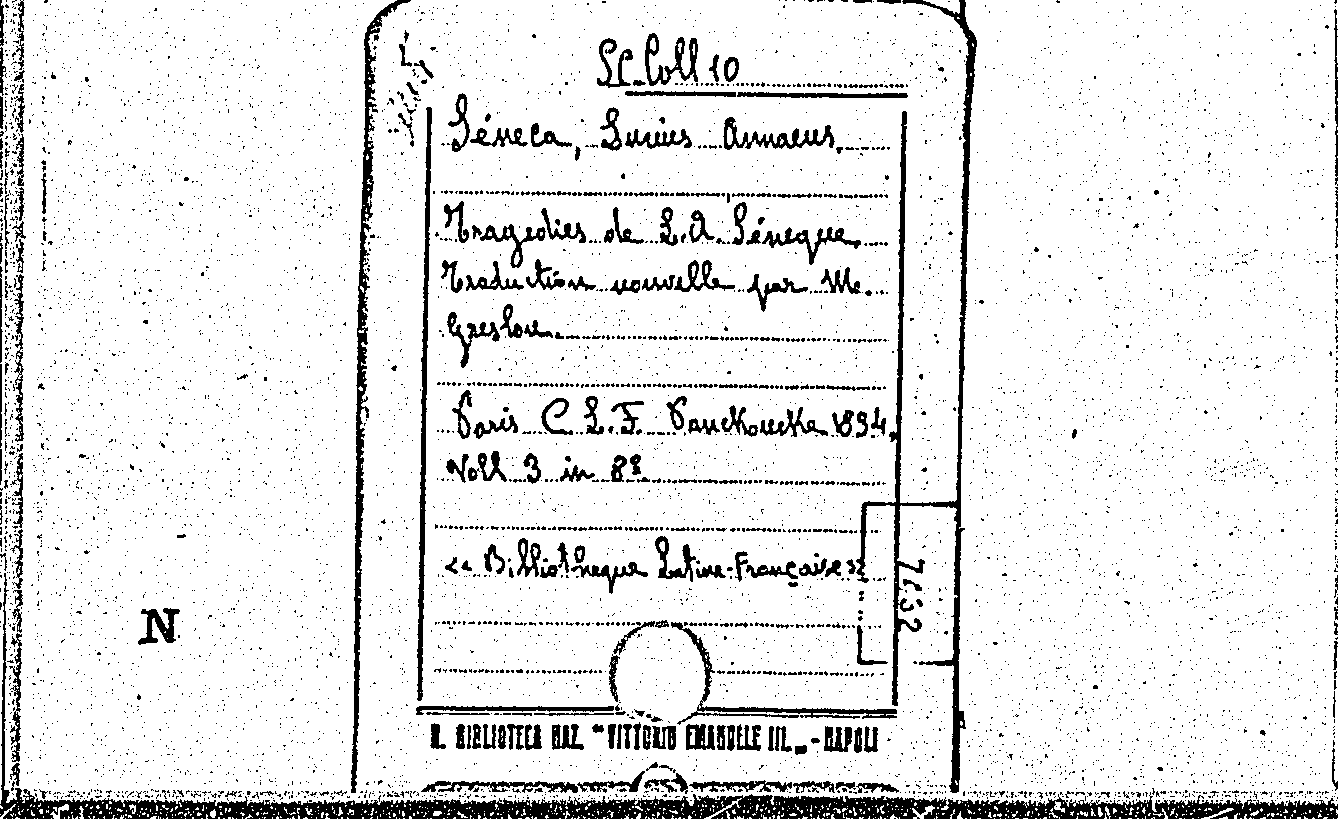 Sc. Coll 10
Séneca, Lucius Annaeus.
Tragedies de L. A. Sénèque.
Traduction nouvelle par M.
Greslou.
Paris C. L. F. Panckoucke 1834.
Voll 3 in 8º
<< Bibliotheque Latine-Française >>
7632
N
R. BIBLIOTECA NAZ. "VITTORIO EMANUELE III." - NAPOLI